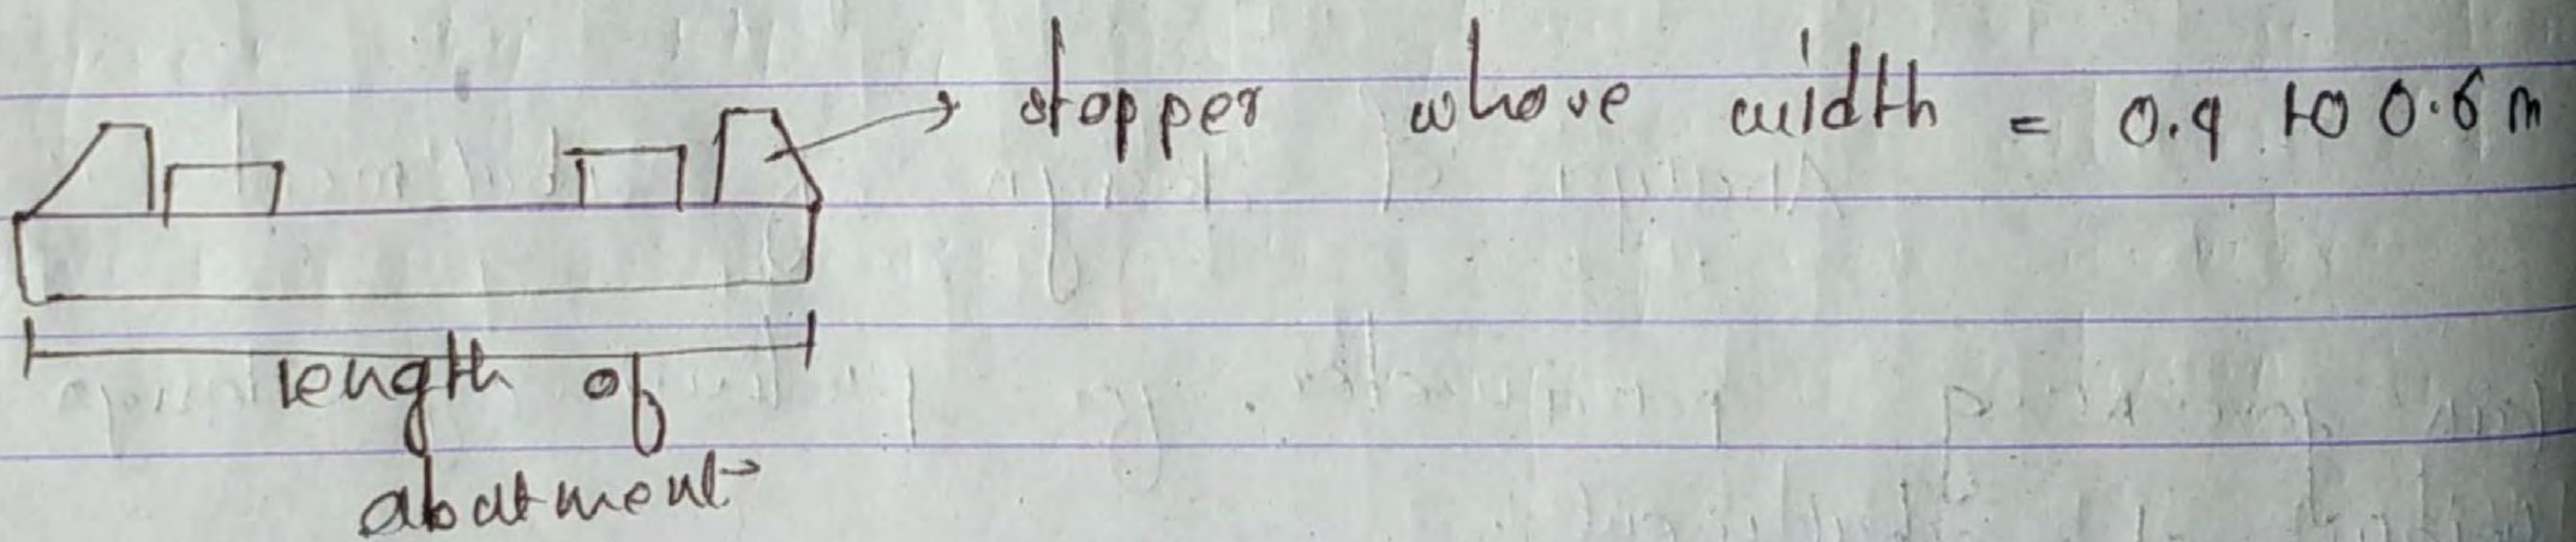 stopper whose width = 0.4 to 0.6 m
length of
abatment